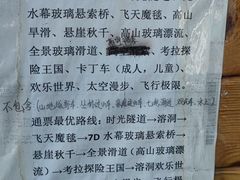 水幕玻璃悬索桥、飞天魔毯、高山
旱滑、悬崖秋千、高山玻璃漂流、
全景玻璃滑道、考拉探
险王国、卡丁车(成人,儿童)、
欢乐世界、太空漫步、飞行极限。
不包含
通票最优路线:时光隧道→溶洞→
飞天魔毯→7D 水幕玻璃悬索桥→
悬崖秋千→全景滑道(高山玻璃漂
流)→考拉探险王国→溶洞欢乐世